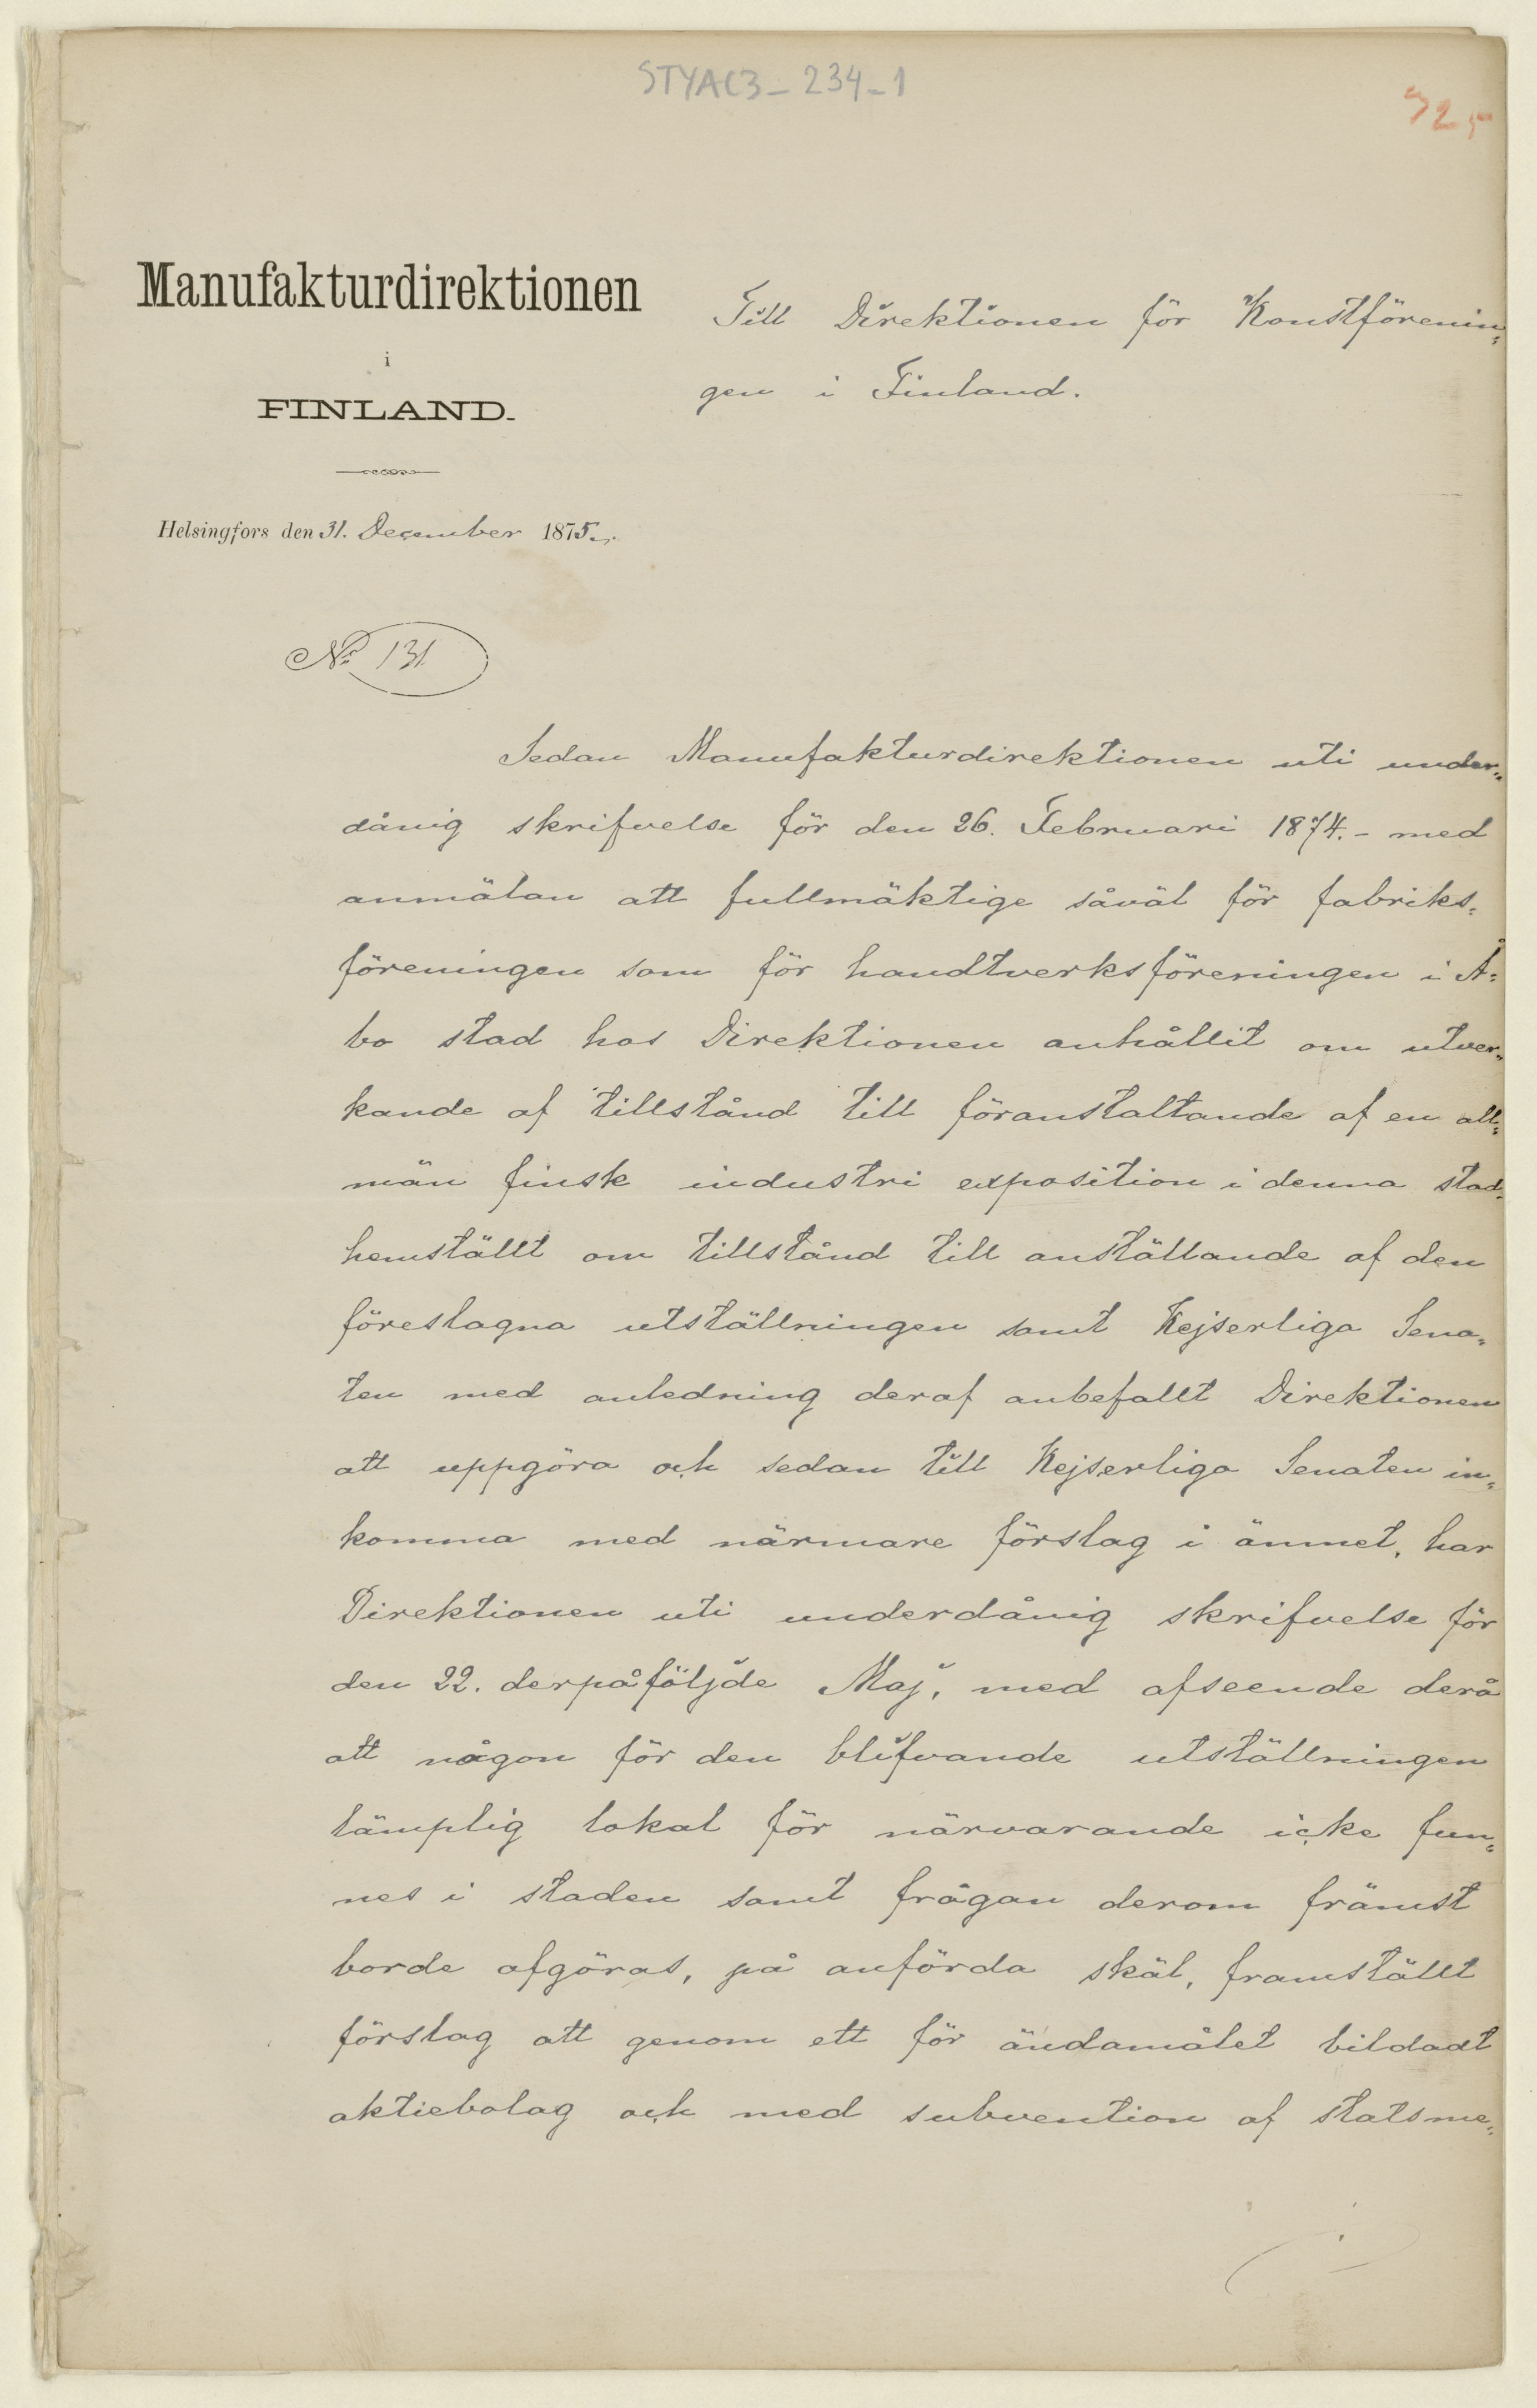 STYAC3_234_1
32,
Manufakturdirektionen
i
FINLAND.
Helsingfors den 31. December 1875.
Till Direktionen för Konstförenin=
gen i Finland.
No 131
Sedan Manufakturdirektionen uti under=
dånig skrifvelse för den 26. Februari 1874.- med
anmälan att fullmäktige såväl för fabriks=
föreningen som för handtverksföreningen i Å=
bo stad hos Direktionen anhållit om utver=
kande af tillstånd till föranstaltande af en all=
män finsk industri exposition i denna stad
hemställt om tillstånd till anställande af den
föreslagna utställningen samt Kejserliga Sena=
ten med anledning deraf anbefallt Direktionen
att uppgöra och sedan till Kejserliga Senaten in=
komma med närmare förslag i ämnet, har
Direktionen uti underdånig skrifvelse för
den 22. derpåföljde Maj, med afseende derå
att någon för den blifvande utställningen
lämplig lokal för närvarande icke fun=
nes i staden samt frågan derom främst
borde afgöras, på anförda skäl, framställt
förslag att genom ett för ändamålet bildadt
aktiebolag och med subvention af statsme=